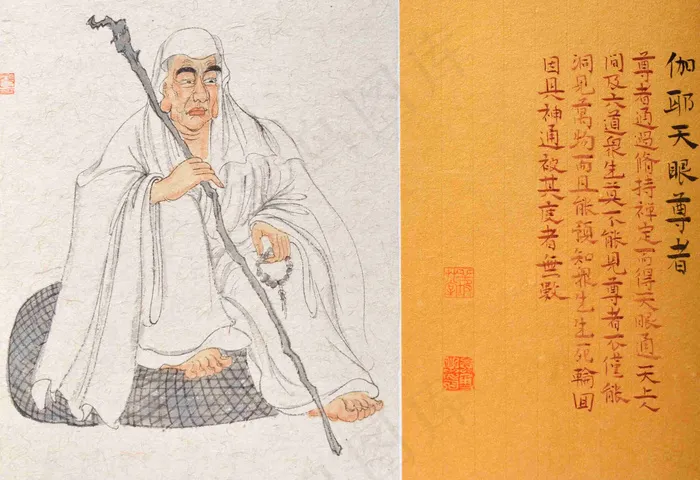 伽耶天眼尊者
尊者通過脩持禅定而得天眼通天上人
间及六道衆生莫不能見尊者不僅能
洞見萬物而且能預知衆生生死輪回
因具神通故其度者無數